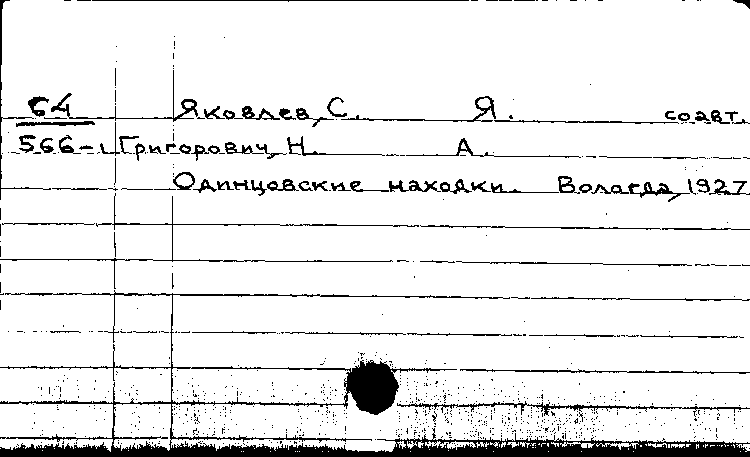 64 Яковлев, С. Я. соавт.
566-1 Григорович, Н. А.
Одинцовские находки. Вологда, 1927